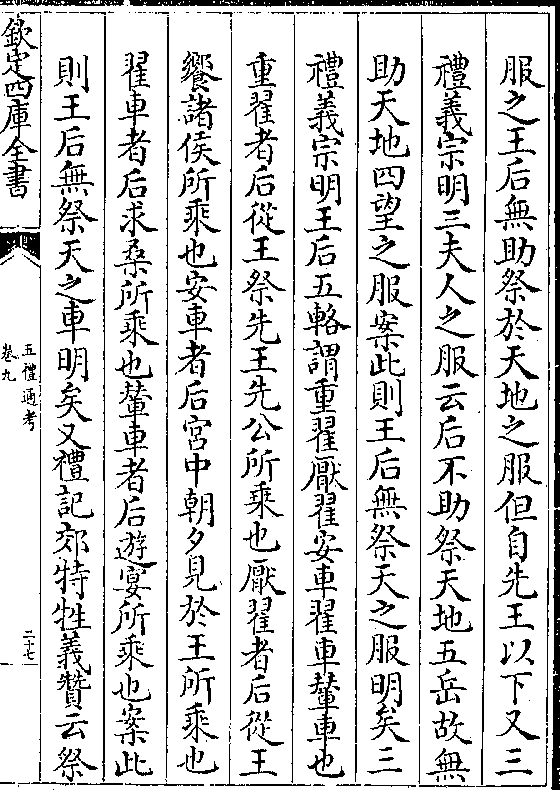 服之王后無助祭於天地之服但自先王以下又三
禮義宗明三夫人之服云后不助祭天地五岳故無
助天地四望之服案此則王后無祭天之服明矣三
禮義宗明王后五輅謂重翟厭翟安車翟車輦車也
重翟者后從王祭先王先公所乘也厭翟者后從王
饗諸侯所乘也安車者后宮中朝夕見於王所乘也
翟車者后求桑所乘也輦車者后遊宴所乘也案此
則王后無祭天之車明矣又禮記郊特牲義贊云祭
欽定四庫全書
五禮通考
卷九
二十七